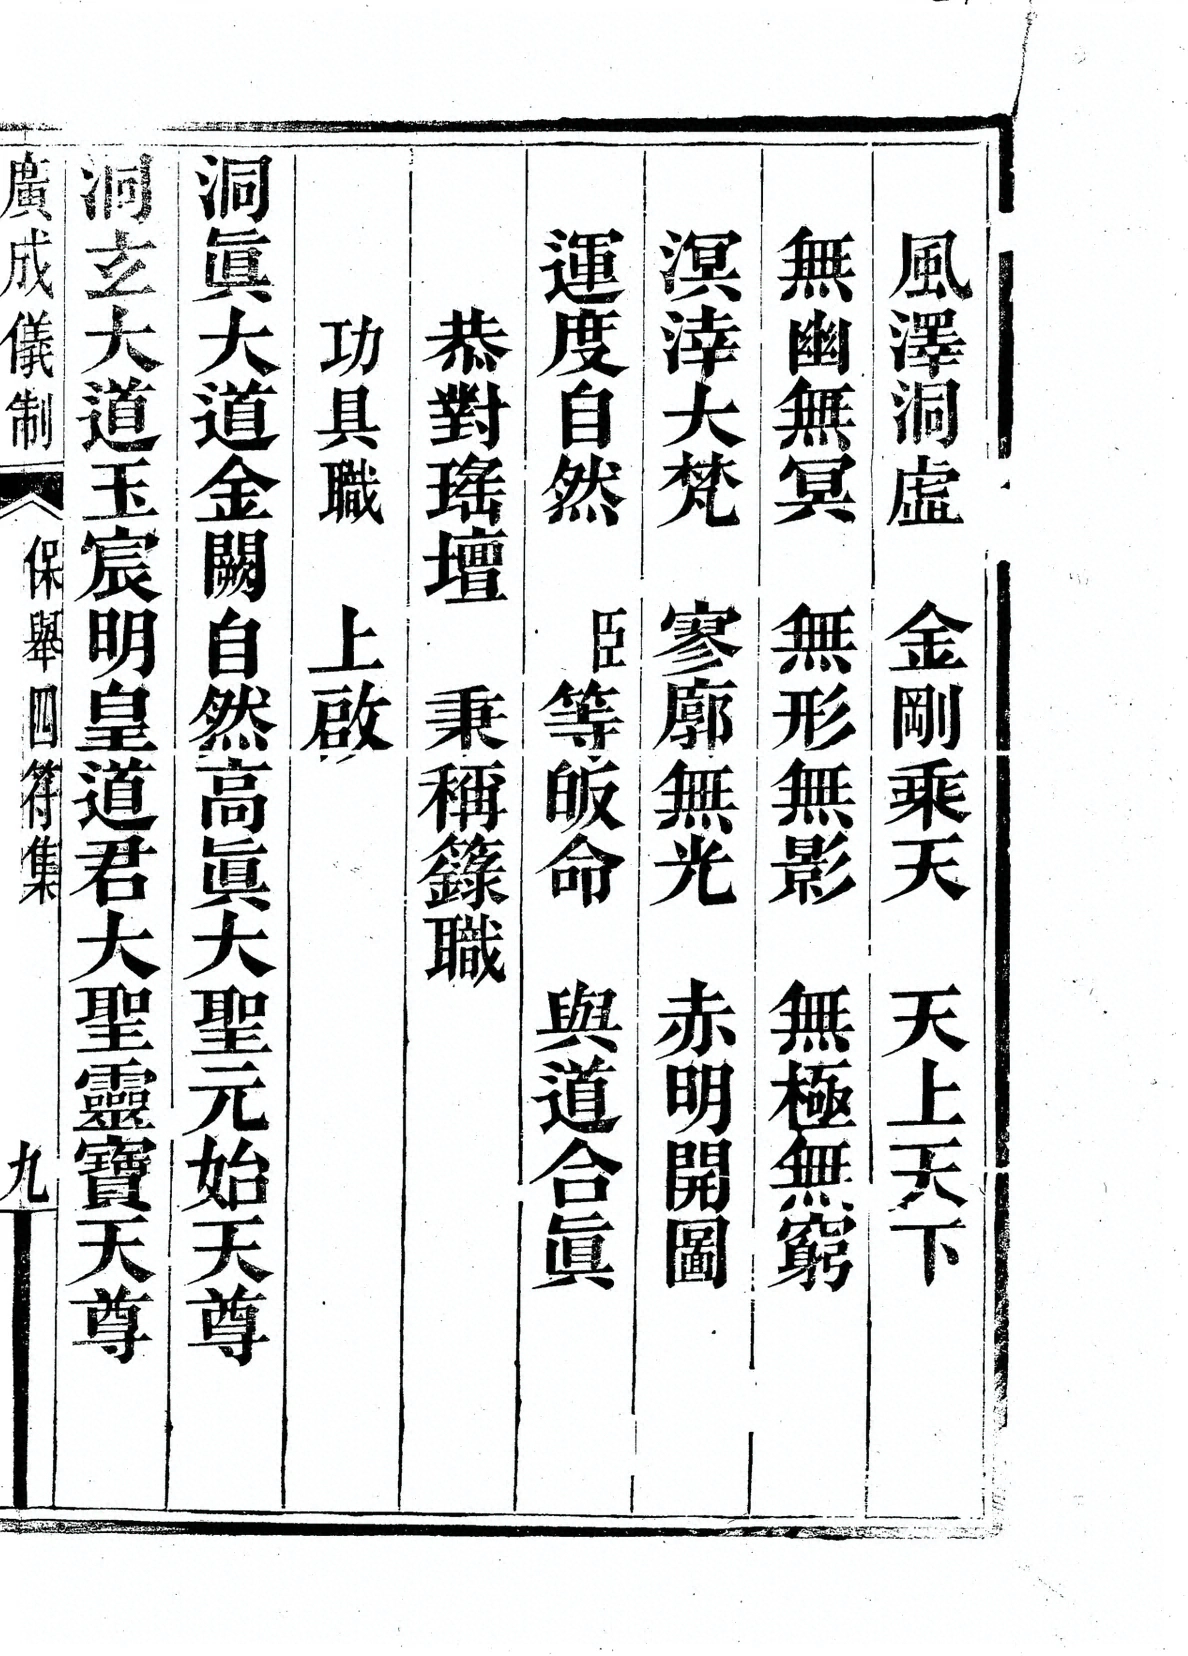 風澤洞虛　金剛乘天　天上天下
無幽無冥　無形無影　無極無窮
溟涬大梵　寥廓無光　赤明開圖
運度自然　臣等皈命　與道合眞
恭對瑤壇　秉稱籙職
功具職　上啟
洞眞大道金闕自然高眞大聖元始天尊
洞玄大道玉宸明皇道君大聖靈寶天尊
廣成儀制　保舉四符集　九